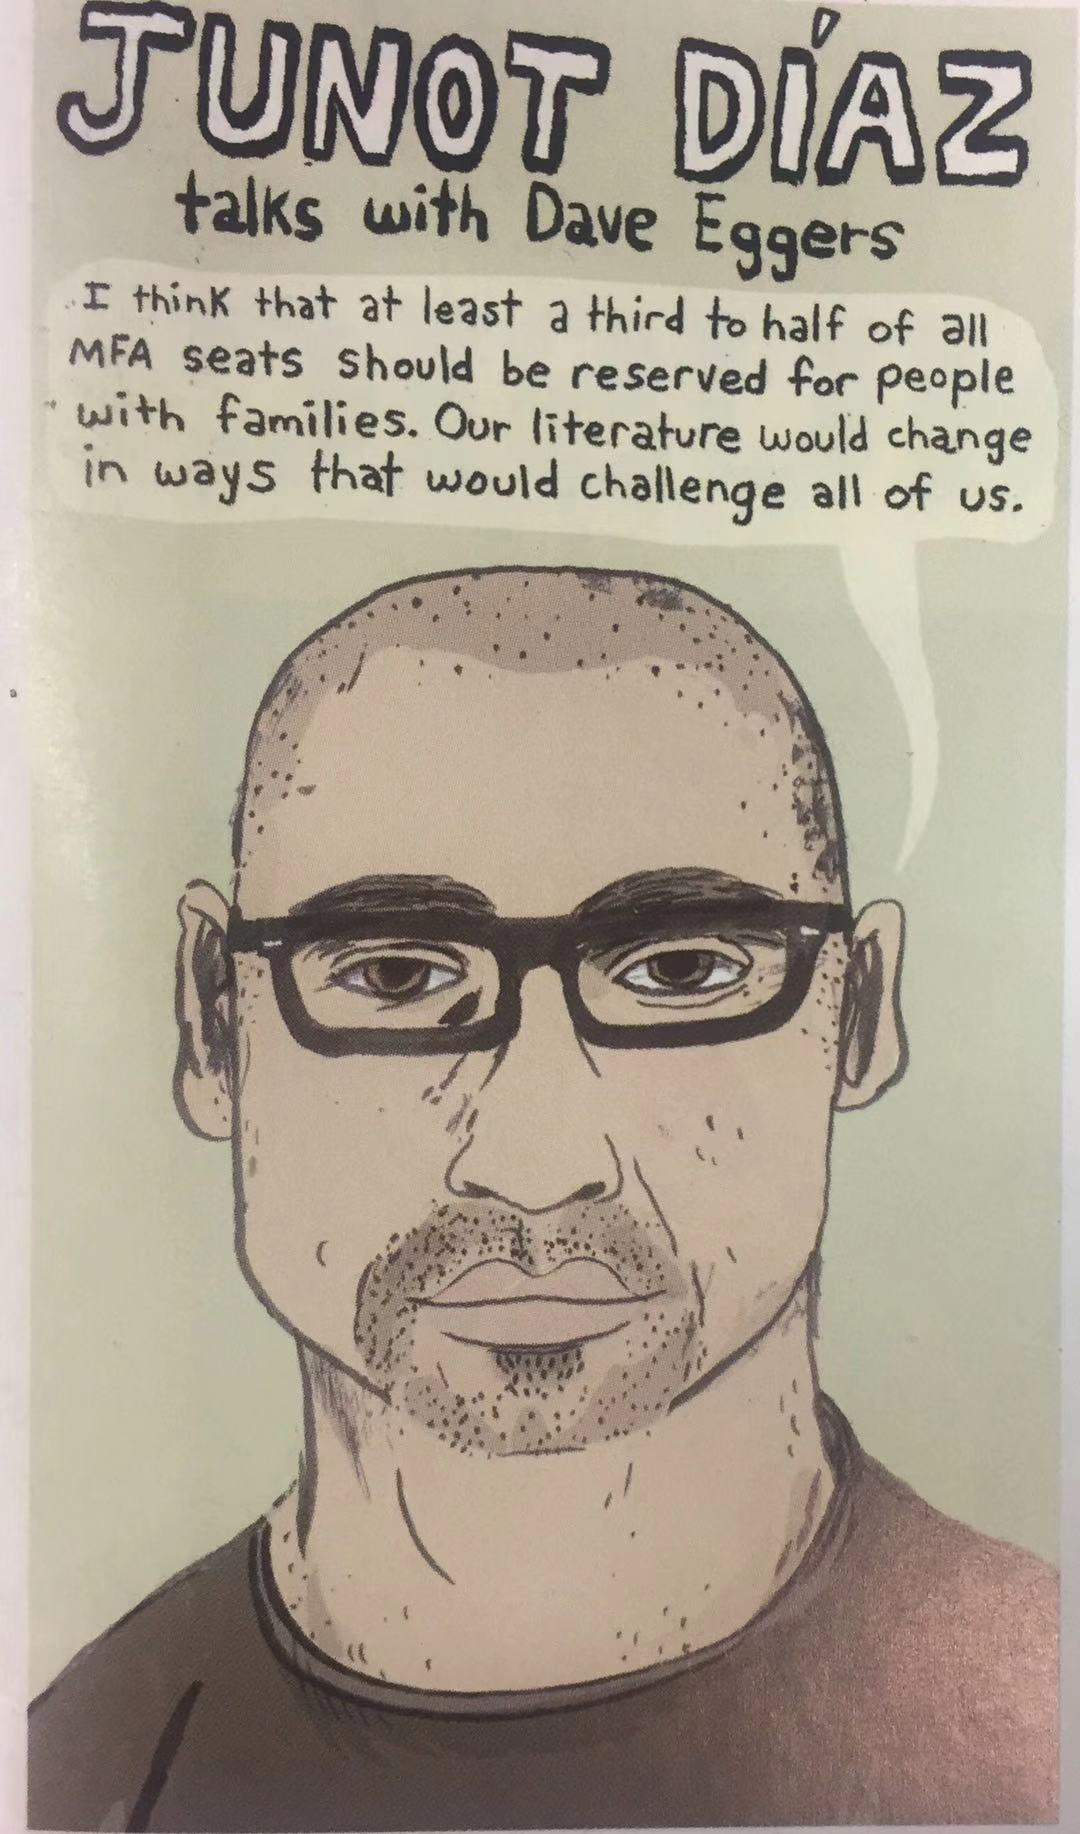 JUNOT DÍAZ
talks with Dave Eggers
I think that at least a third to half of all
MFA seats should be reserved for people
with families. Our literature would change
in ways that would challenge all of us.